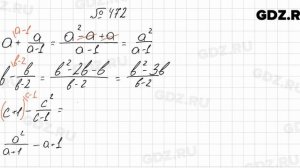 GDZ.RU
№ 472
a + a/(a-1) = (a² - a + a)/(a-1) = a²/(a-1)
b - b/(b-2) = (b² - 2b - b)/(b-2) = (b² - 3b)/(b-2)
(c+1) - c²/(c-1) =
a²/(a+1) - a+1
GDZ.RU